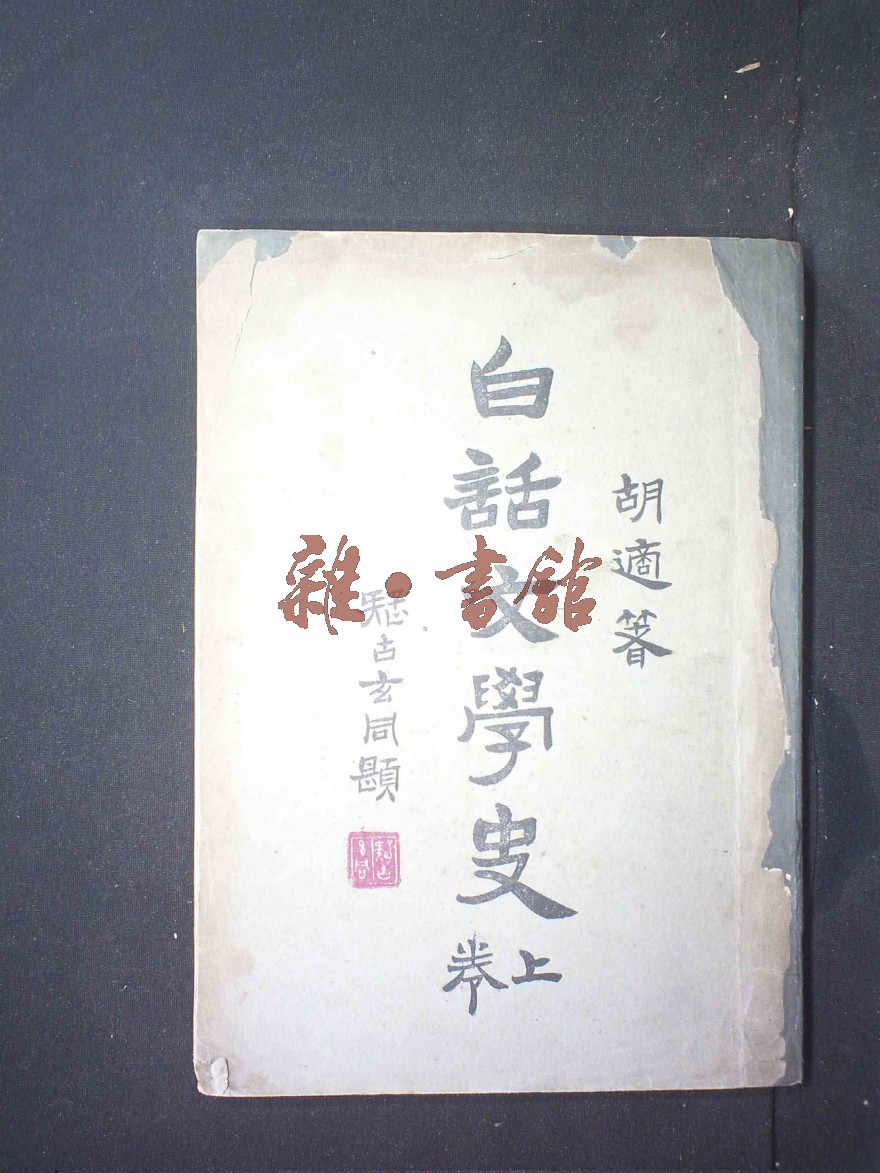 胡適箸
白話文學史
上卷
疑古玄同題
雜·書館